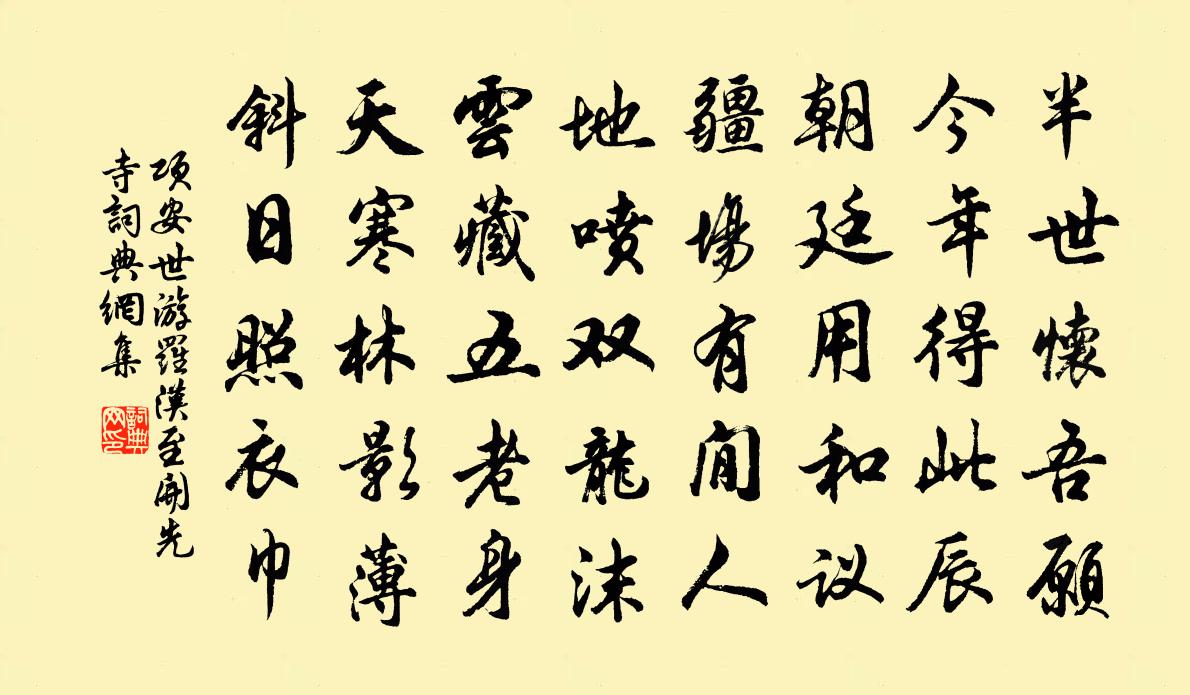 半世懷吾願
今年得此辰
朝廷用和议
疆場有閒人
地喷双龍沫
雲藏五老身
天寒林影薄
斜日照衣巾
項安世游羅漢至開先
寺詞典網集
詞典
网印